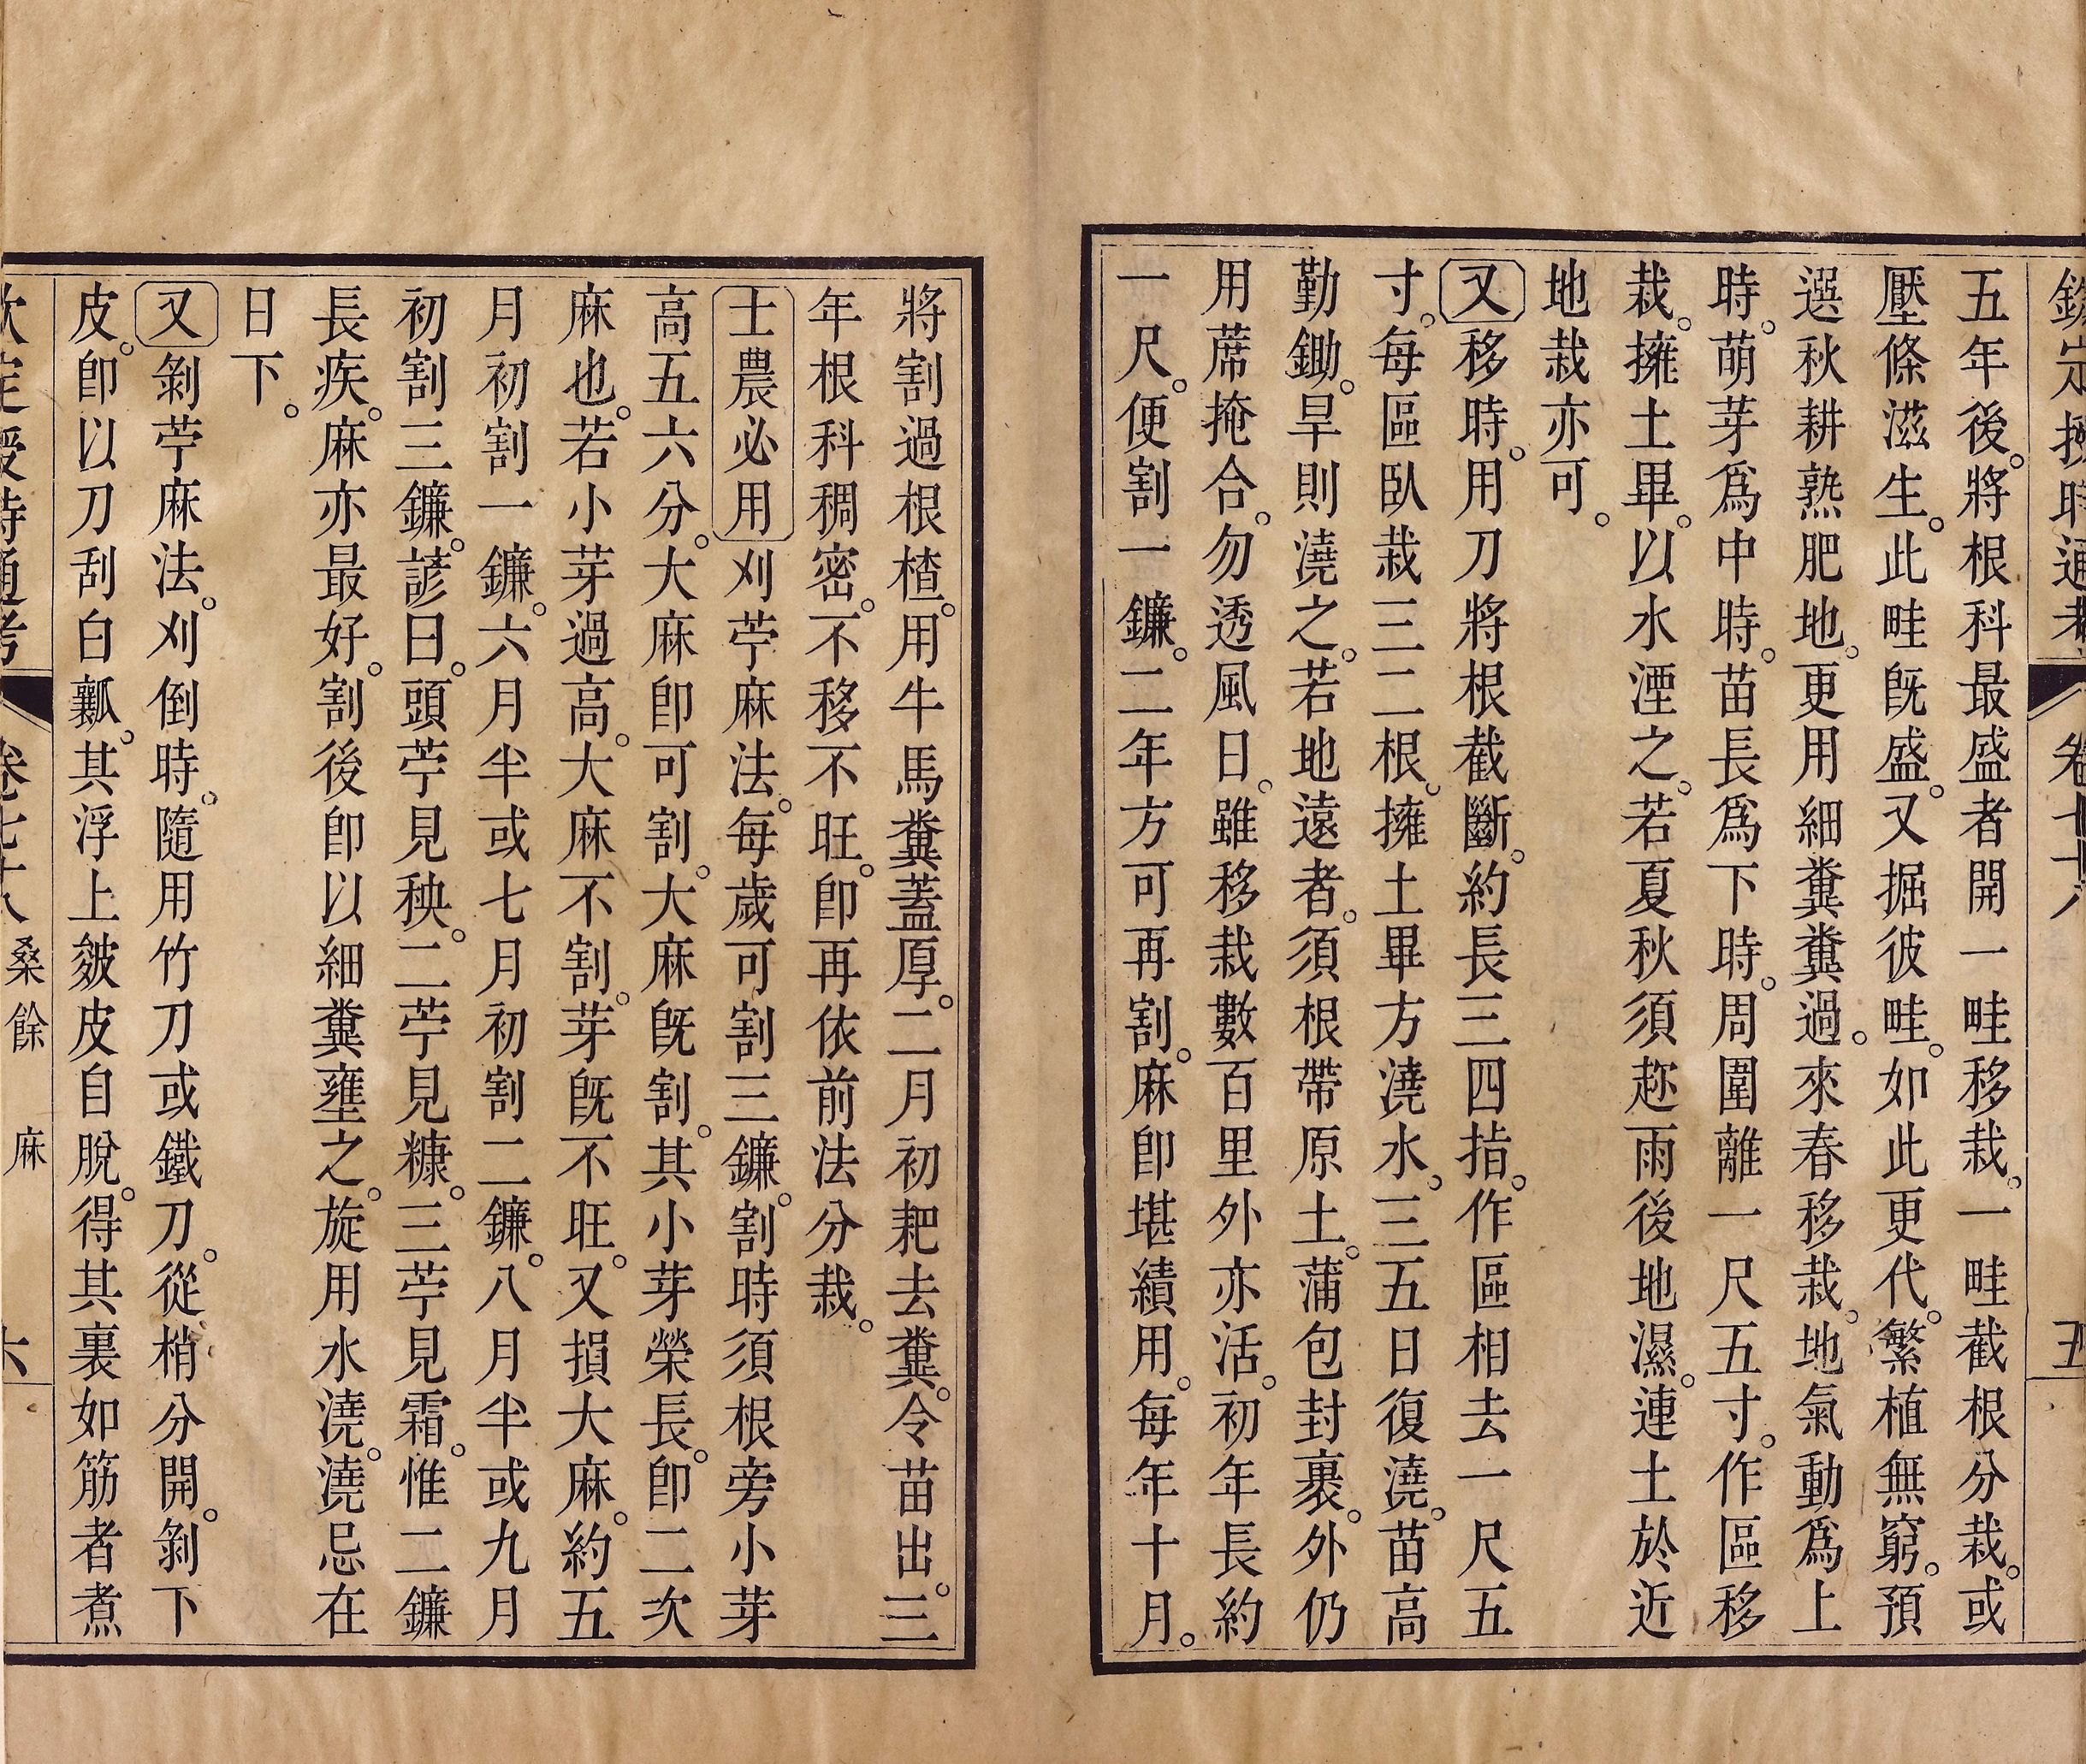 欽定授時通考 卷七十八 五
五年後。將根科最盛者開一畦移栽。一畦截根分栽。或
壓條滋生。此畦旣盛。又掘彼畦。如此更代。繁植無窮。預
選秋耕熟肥地。更用細糞糞過。來春移栽。地氣動爲上
時。萌芽爲中時。苗長爲下時。周圍離一尺五寸。作區移
栽。擁土畢。以水湮之。若夏秋須趂雨後地濕。連土於近
地栽亦可。
又移時。用刀將根截斷。約長三四指。作區相去一尺五
寸。每區臥栽三二根。擁土畢方澆水。三五日復澆。苗高
勤鋤。旱則澆之。若地遠者。須根帶原土。蒲包封裹。外仍
用蓆掩合。勿透風日。雖移栽數百里外亦活。初年長約
一尺。便割一鐮。二年方可再割。麻卽堪績用。每年十月。
將割過根楂。用牛馬糞蓋厚。二月初耙去糞。令苗出。三
年根科稠密。不移不旺。卽再依前法分栽。
士農必用刈苧麻法。每歲可割三鐮。割時須根旁小芽
高五六分。大麻卽可割。大麻旣割。其小芽榮長。卽二次
麻也。若小芽過高。大麻不割。芽旣不旺。又損大麻。約五
月初割一鐮。六月半或七月初割二鐮。八月半或九月
初割三鐮。諺曰。頭苧見秧。二苧見糠。三苧見霜。惟二鐮
長疾。麻亦最好。割後卽以細糞壅之。旋用水澆。澆忌在
日下。
又剝苧麻法。刈倒時。隨用竹刀或鐵刀。從梢分開。剝下
皮。卽以刀刮白瓤。其浮上皴皮自脫。得其裏如筋者煮
欽定授時通考 卷七十八 桑餘 麻 六